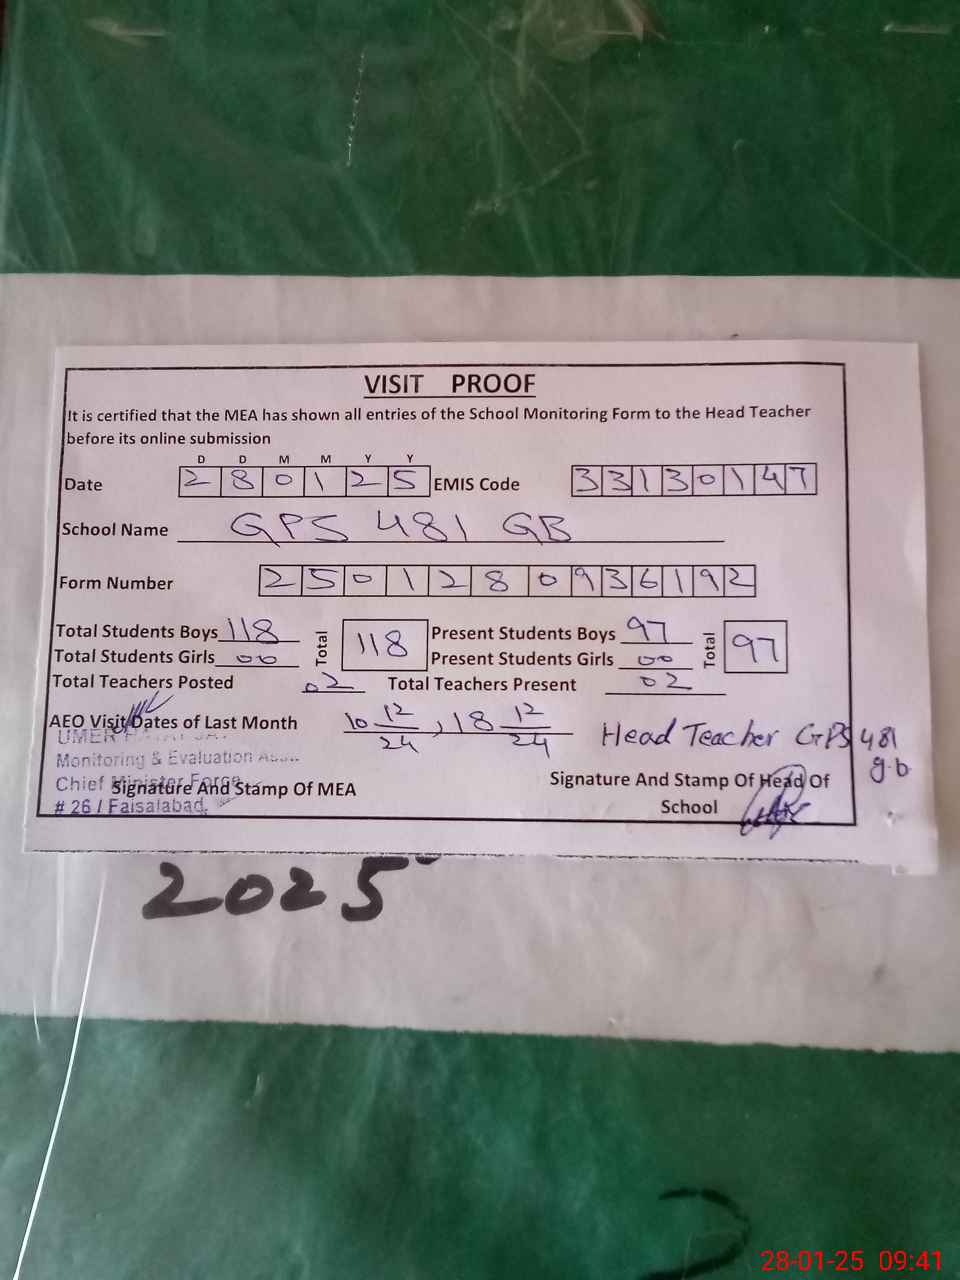 VISIT PROOF
It is certified that the MEA has shown all entries of the School Monitoring Form to the Head Teacher
before its online submission
D D M M Y Y
Date 2 8 0 1 2 5 EMIS Code 3 3 1 3 0 1 4 7
School Name GPS 481 GB
Form Number 2 5 0 1 2 8 0 9 3 6 1 9 2
Total Students Boys 118 Total 118 Present Students Boys 97 Total 97
Total Students Girls 00 Present Students Girls 00
Total Teachers Posted 02 Total Teachers Present 02
AEO Visit Dates of Last Month 10 12/24, 18 12/24
Head Teacher GPS 481
g.b
UMER
Monitoring & Evaluation
Chief Minister Force
# 26 / Faisalabad.
Signature And Stamp Of MEA
Signature And Stamp Of Head Of
School
2025
28-01-25 09:41